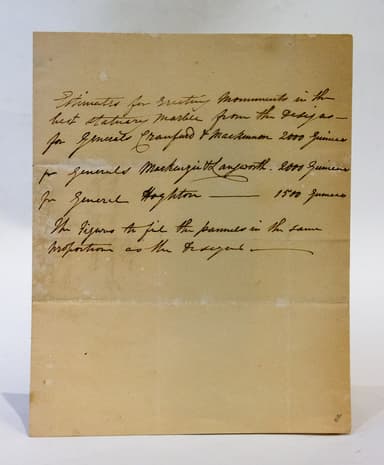 Estimates for Erecting Monuments in the
best statuary Marble from the Desigas —
for Generals Craufurd & Mackinnon 2000 Guineas
for Generals Mackenzie & Langworth . 2000 Guineas
for General Hoghton — 1500 Guineas
The Figures to fil the pannels in the same
proportions as the Desigens —